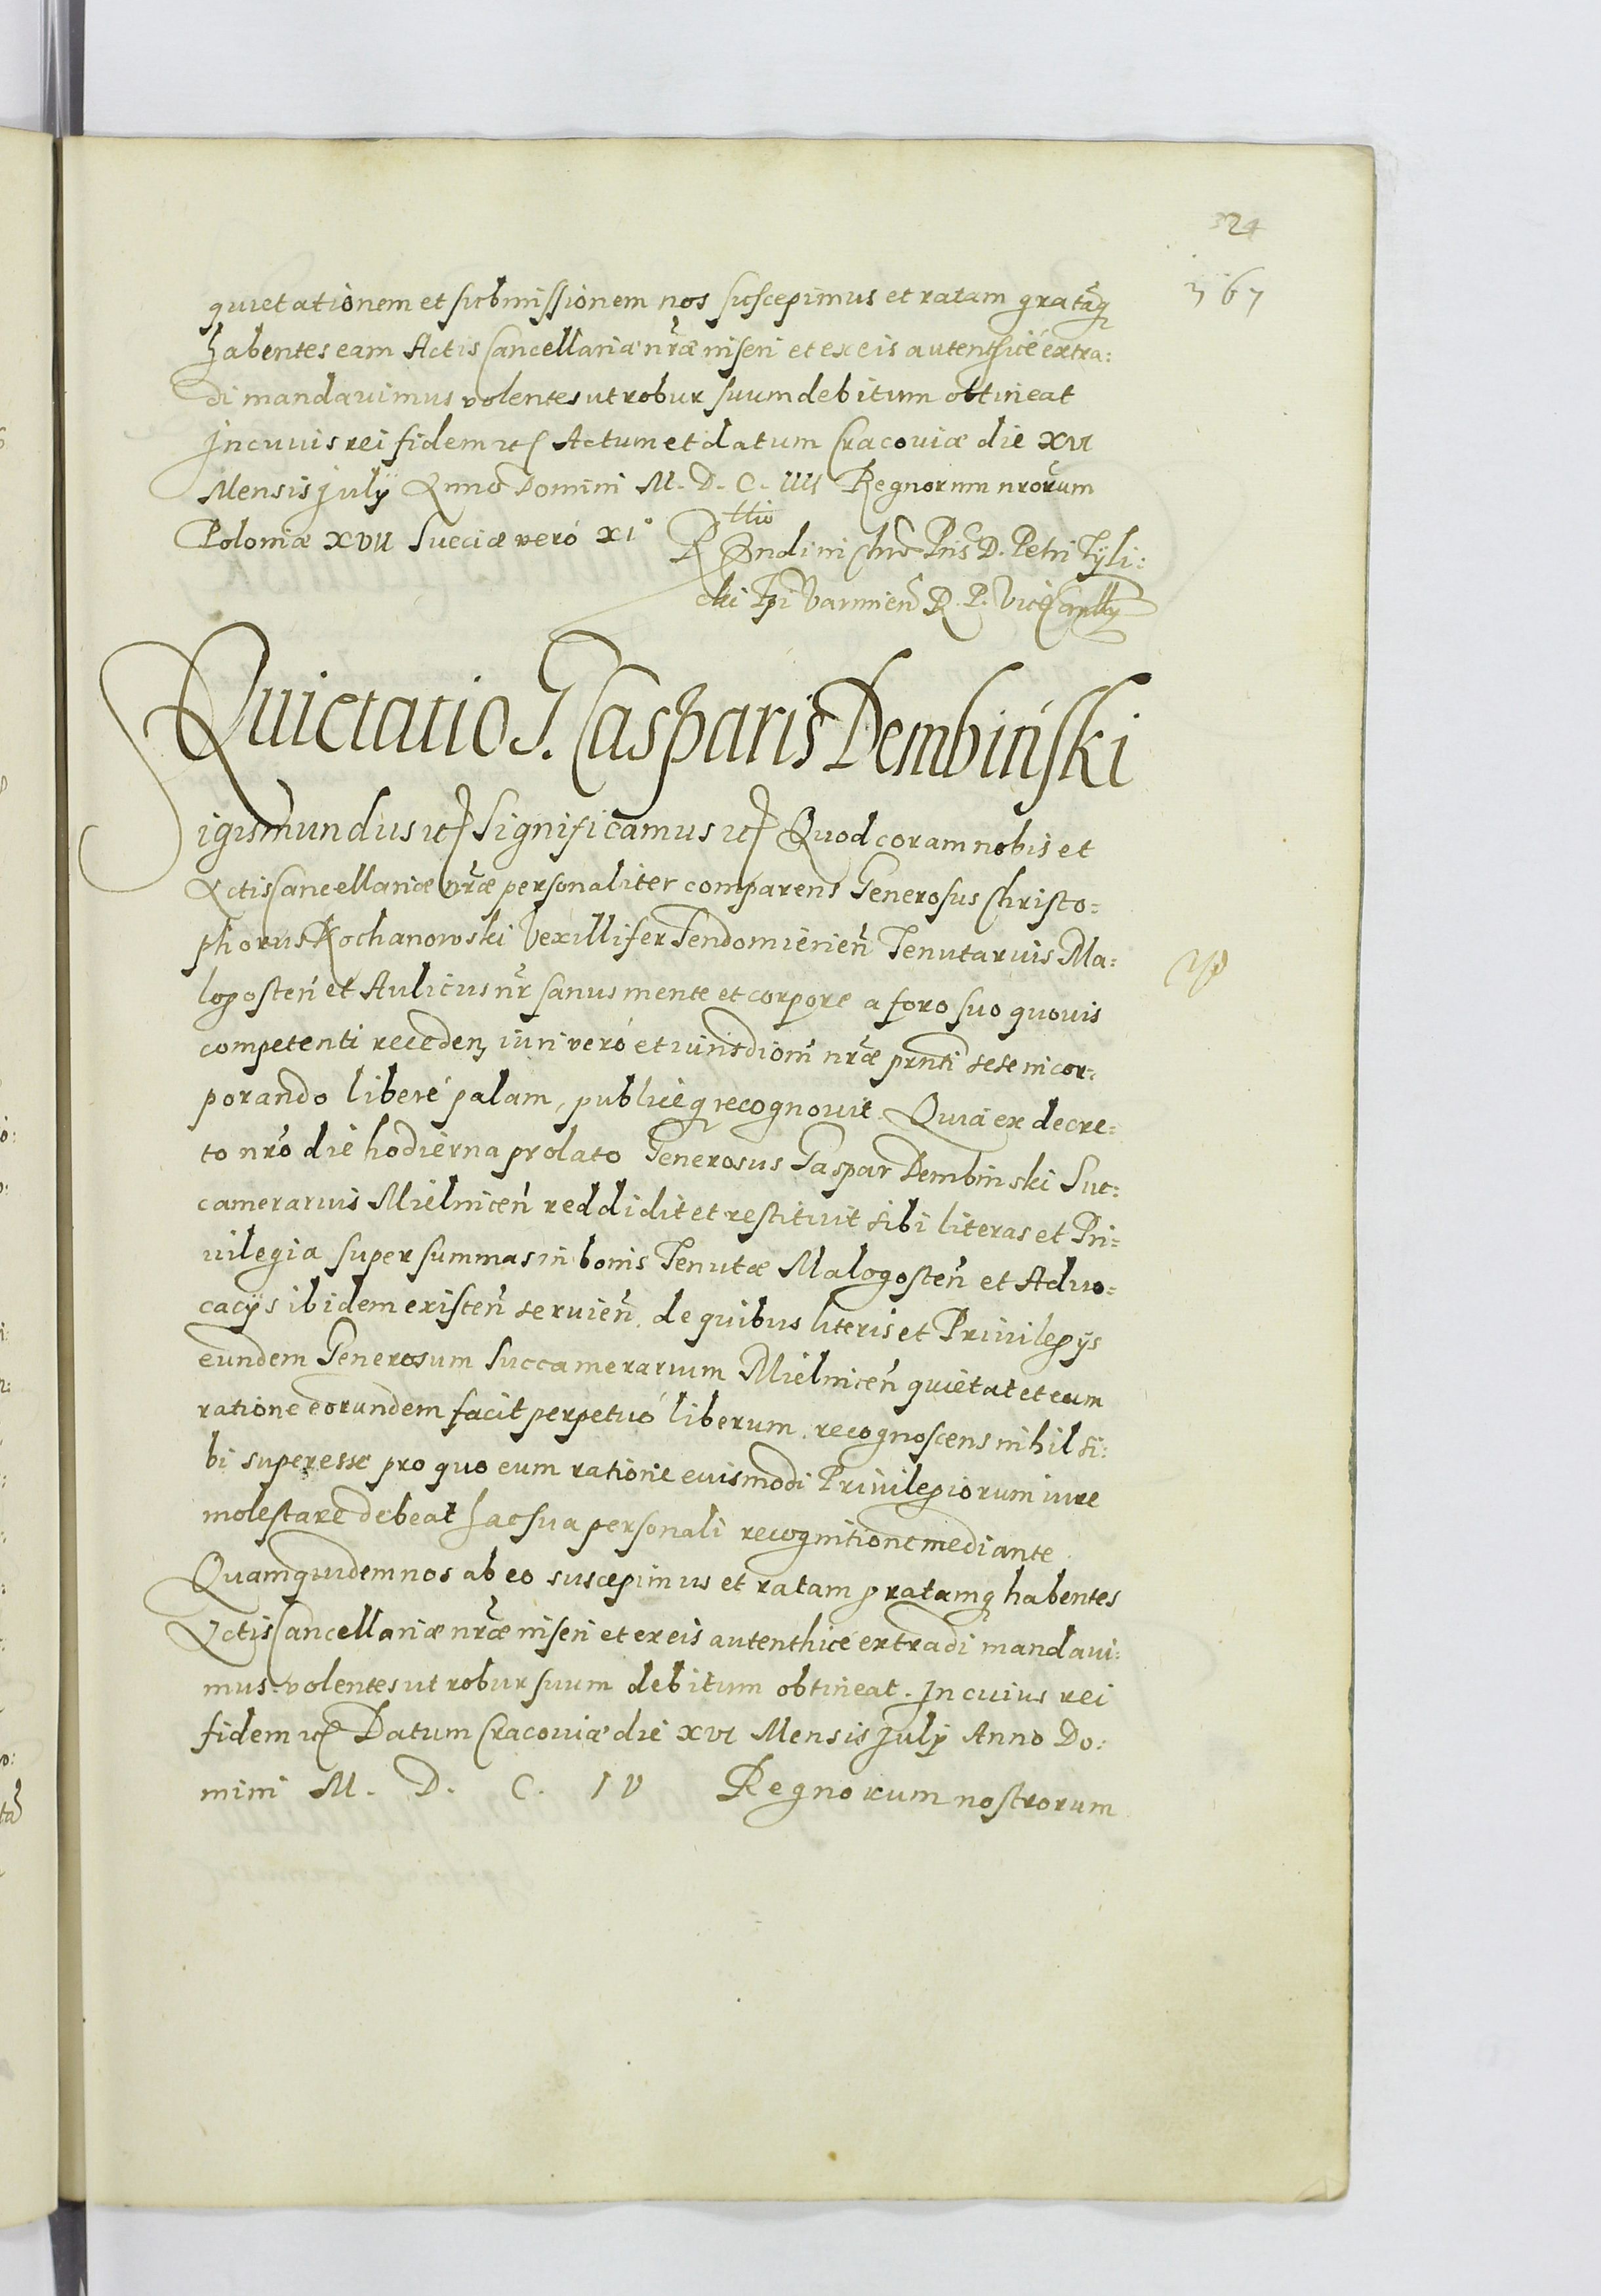 324
367
quietationem et submissionem nos suscepimus et ratam gratãq
habentes eam Actis Cancellariæ nr̃æ inseri et ex eis autenthicè extra:
di mandauimus volentes ut robur suum debitum obtineat
In cuius rei fidem etc Actum et datum Cracouiæ die XVI
Mensis July Anno Domini M. D. C. IIII Regnorum nrõrum
Poloniæ XVII Sueciæ verò XI°
Rttio Rndi in Chro Pris D. Petri Tyli:
cki Epi Varmien̄ R. P. Vice Cancllrij
Quietatio G. Casparis Dembiński
Sigismundus etc Significamus etc Quod coram nobis et
Actis Cancellariæ nr̃æ personaliter comparens Generosus Christo:
phorus Kochanowski Vexillifer Sendomirien̄ Tenutarius Ma:
logosten̄ et Aulicus nr̃ sanus mente et corpore a foro suo quouis
competenti receden̄ iuri verò et iurisdioni nr̃æ prnti sese incor:
porando liberè palam, publiceq recognouit. Quia ex decre:
to nrõ die hodierna prolato Generosus Gaspar Dembinski Suc:
camerarius Mielnicen̄ reddidit et restituit sibi literas et Pri:
uilegia super summas in bonis Tenutæ Malogosten̄ et Aduo:
cacijs ibidem existen̄ seruien̄. de quibus literis et Priuilegijs
eundem Generosum Succamerarium Mielnicen̄ quietat et eum
ratione eorundem facit perpetuò liberum. recognoscens nihil si:
bi superesse pro quo eum ratione euismodi Priuilegiorum iure
molestare debeat hac sua personali recognitione mediante.
Quamquidem nos ab eo suscepimus et ratam gratamq habentes
Actis Cancellariæ nr̃æ inseri et ex eis autenthicè extradi mandaui:
mus. volentes ut robur suum debitum obtineat. In cuius rei
fidem etc Datum Cracouiæ die XVI Mensis July Anno Do:
mini M. D. C. IV Regnorum nostrorum